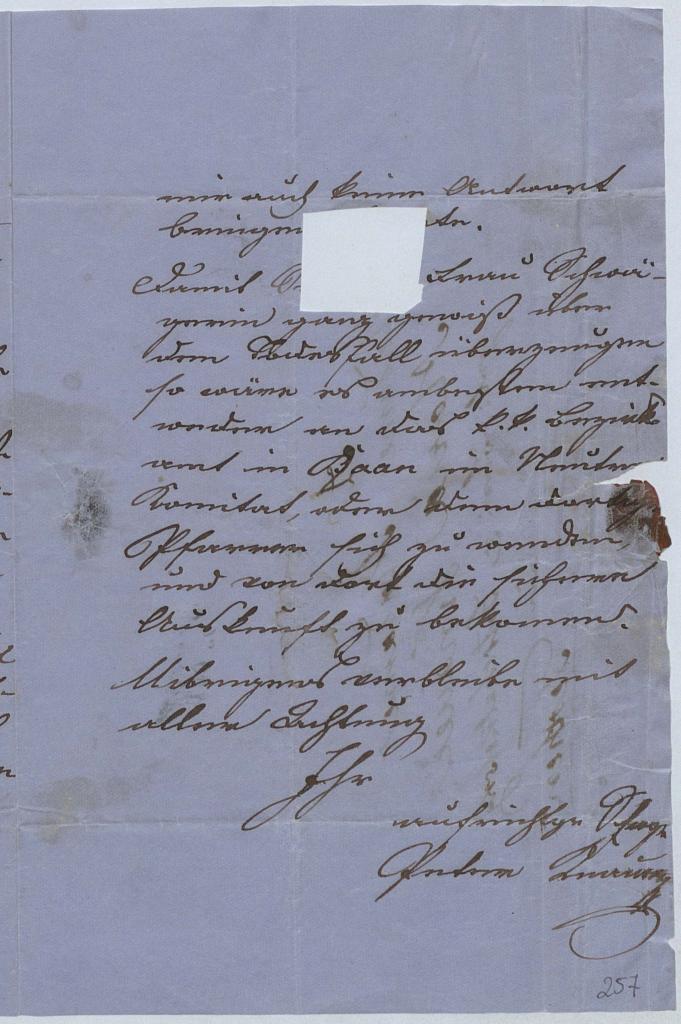 mir auch keine Antwort
bringen te.
Damit Frau Schwä-
gerin ganz gewiß über
den Todesfall überzeugen
so wäre es ambesten ent-
weder an das k. k. Bezirks
amt in Baan im Neutra
Komitat, oder dem dort
Pfarrer sich zu wenden,
und von dort die sichere
Auskunft zu bekomen.
Uibrigens verbleibe mit
aller Achtung
Ihr
aufrichtge
Peter
257